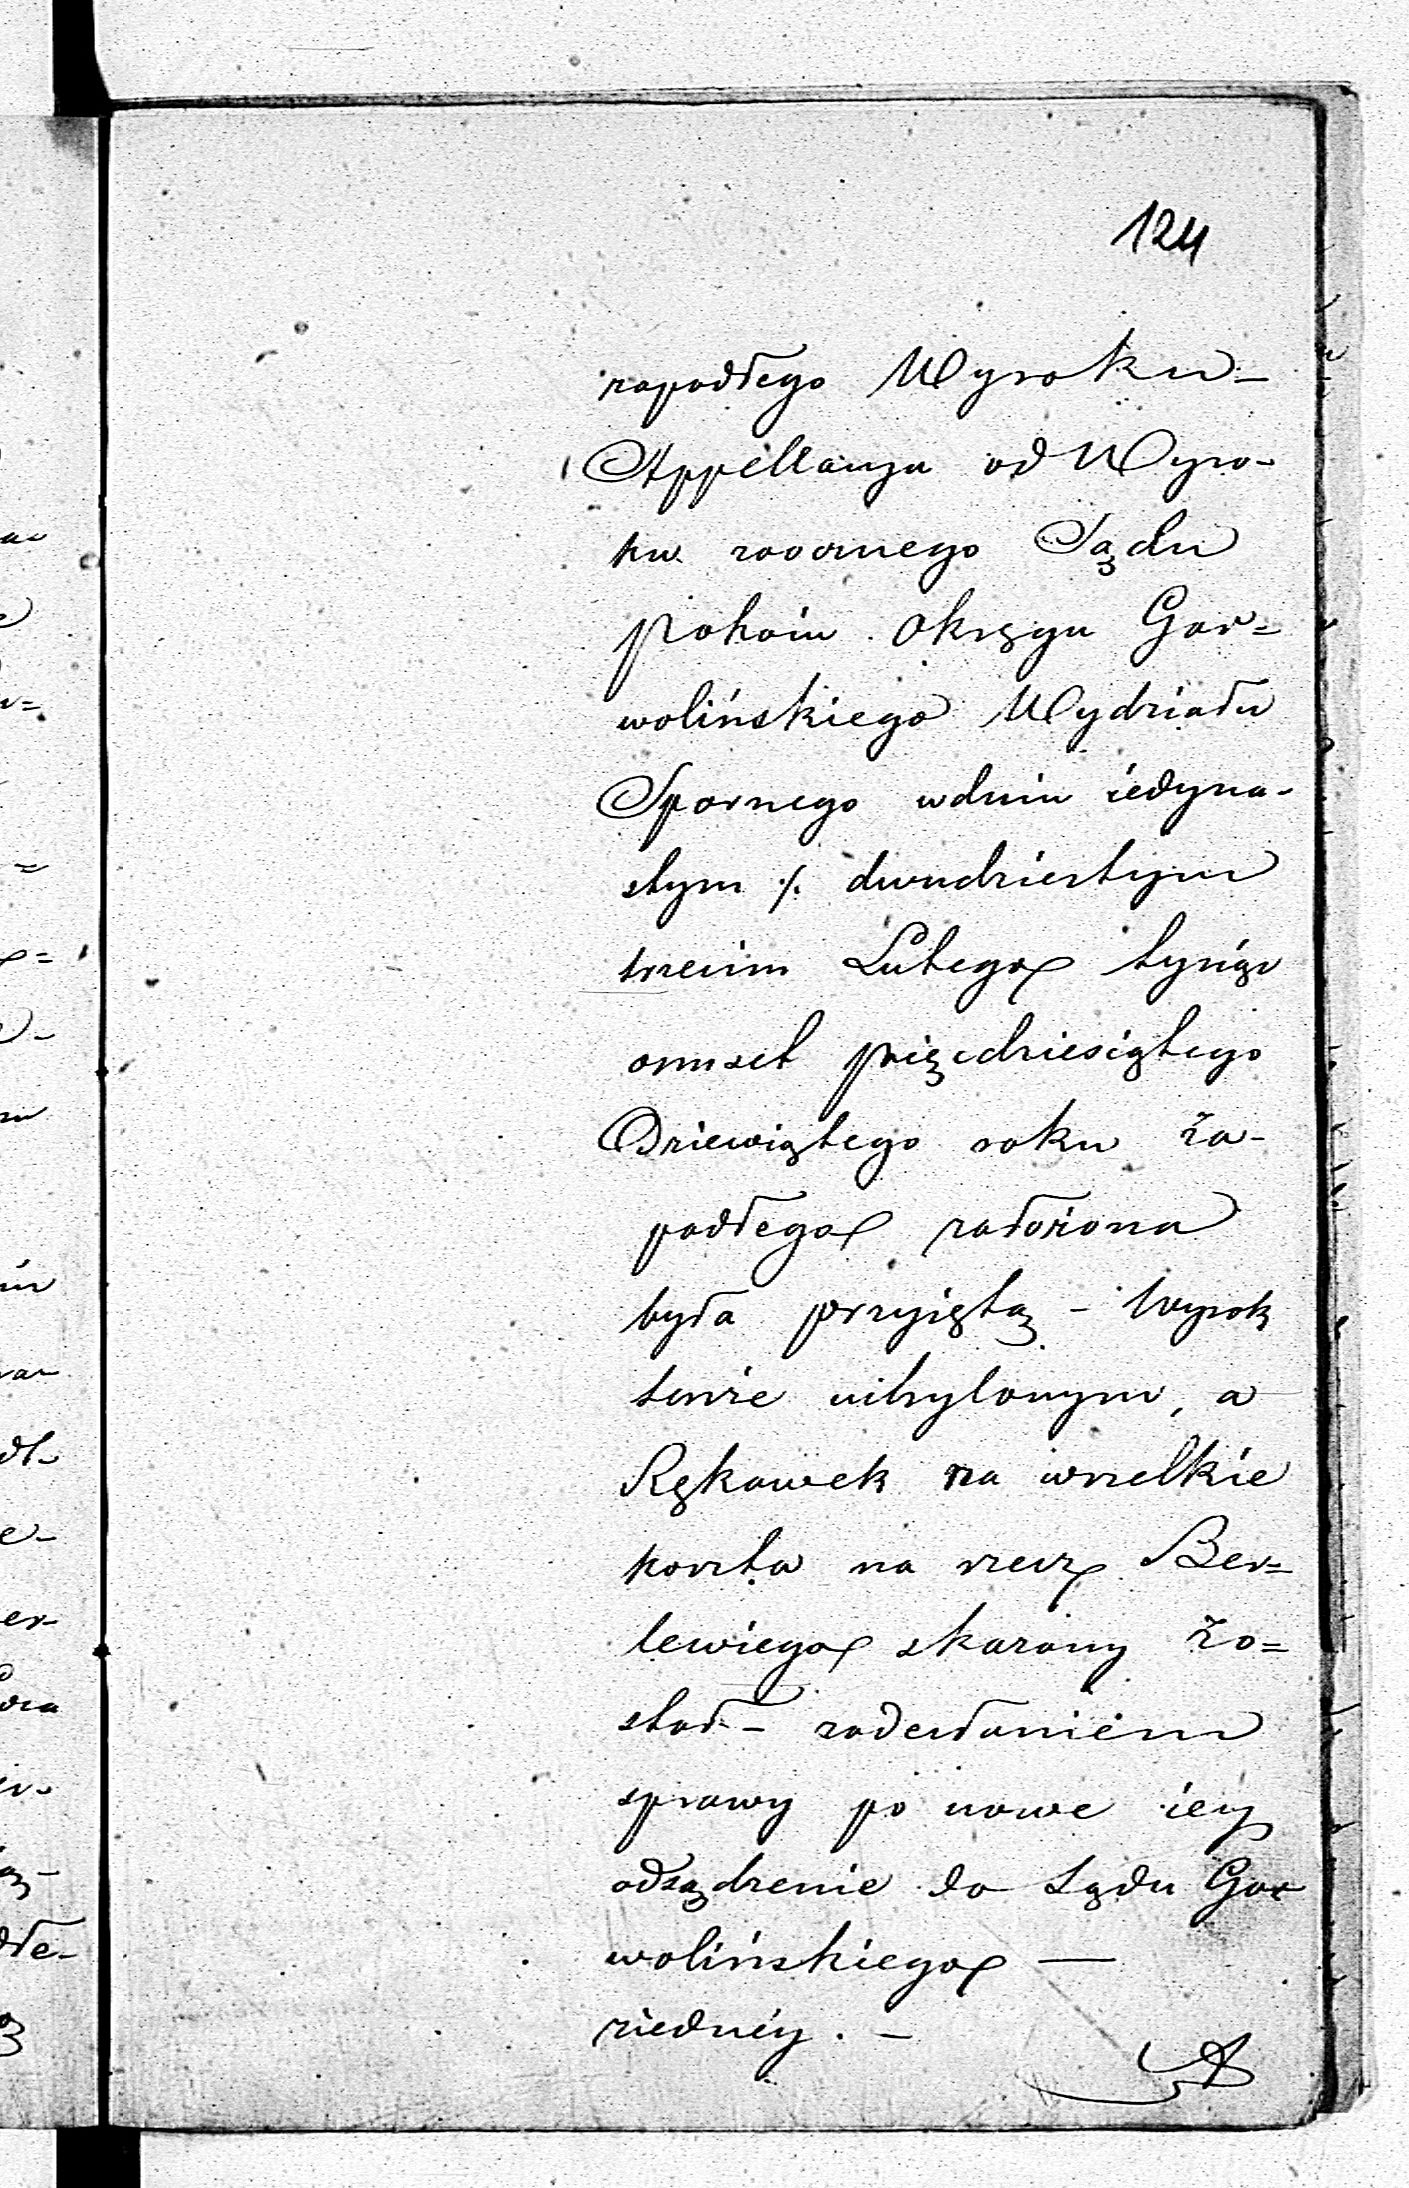 124
zapadłego Wyroku –
Appellacya od Wyro-
ku zaocznego Sądu
Pokoiu Okręgu Gar=
wolińskiego Wydziału
Spornego w dniu iedyna-
stym /. dwudziestym
trzecim Lutego tysiąc
omset pięćdziesiątego
Dziewiątego roku za-
padłego założona
była przyiętą – Wyrok
tenże uchylonym, a
Rękawek na wszelkie
koszta na rzecz Ber=
lewiego skazany zo=
stał – z odesłaniem
sprawy po nowe iey
odsądzenie do Sądu Gar
wolińskiego —
ziedney . –